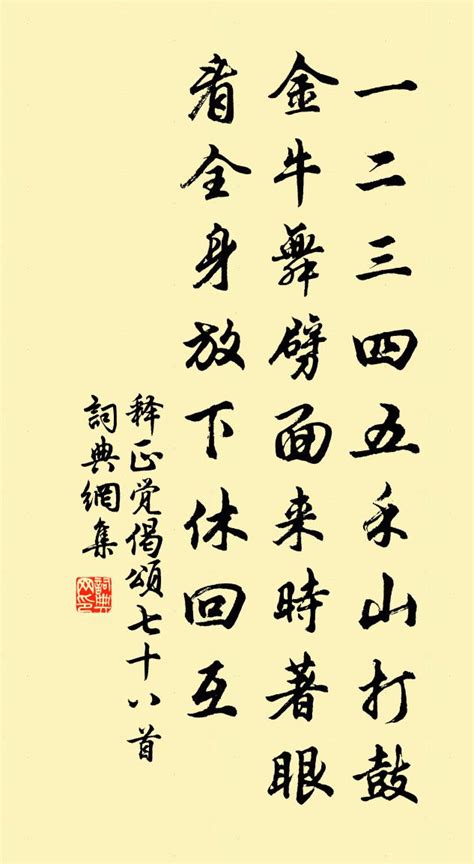 一二三四五禾山打鼓
金牛舞劈面来時著眼
看全身放下休回互
释正觉偈頌七十八首
詞典網集